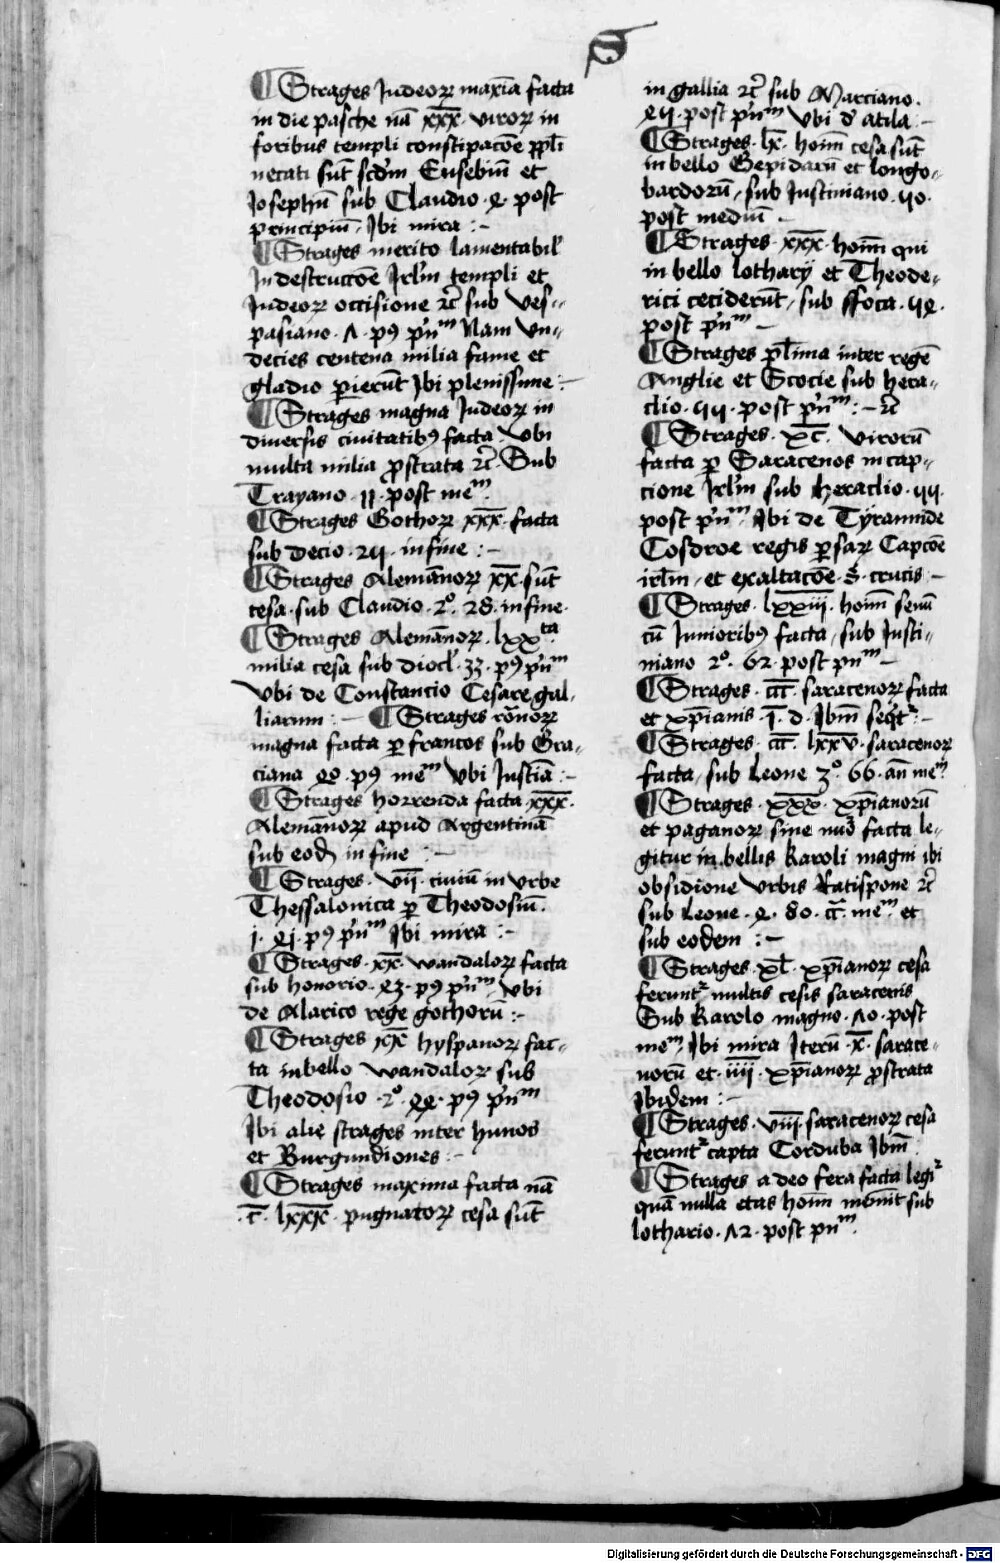 S
¶ Strages Judeoꝝ maxīa facta
in die pasche nā x̅x̅x̅ · viroꝝ in
foribus templi constipacōe ppl̄i
necati sūt scd̄m Eusebiū et
Josephū sub Claudio · ꝯ · post
principiū · Ibi mira :-
¶ Strages merito lamentabil'
In destruccōe Jrl̄m templi et
Judeoꝝ occisione ⁊c̄ sub Ves-
pasiano · ʌ · pꝰ p̄nᵐ Nam Vn-
decies centena milia fame et
gladio perierūt Ibi plenissime :-
¶ Strages magna Judeoꝝ in
diuersis ciuitatibꝰ facta Vbi
multa milia prostrata ⁊c̄ · Sub
Trayano · 11 · post meᵐ
¶ Strages Gothoꝝ x̅x̅x̅ · facta
sub decio · 24 · in fine :-
¶ Strages Alemānoꝝ x̅x̅ · sūt
cesa · sub Claudio · 2º · 28 · in fine ·
¶ Strages Alemānoꝝ · lxxᵗᵃ
milia cesa sub diocl' · 33 · pꝰ p̄nᵐ
Vbi de Constancio Cesare gal-
liarum :- ¶ Strages rōnoꝝ
magna facta per francos sub Gra-
ciana · pꝰ meᵐ Vbi Justiā :-
¶ Strages horrenda facta x̅x̅x̅ ·
Alemānoꝝ apud Argentinā
sub eod̄ in fine :-
¶ Strages · v̅i̅i̅ · ciuiū in Vrbe
Thessalonica per Theodosiū ·
j · pꝰ p̄nᵐ Ibi mira :-
¶ Strages · x̅x̅ · wandaloꝝ facta
sub honorio · pꝰ p̄nᵐ · Vbi
de Alarico rege gothorū :-
¶ Strages x̅x̅ hyspanoꝝ fac-
ta in bello wandaloꝝ sub
Theodosio · 2º · pꝰ p̄nᵐ
Ibi alie strages inter hunos
et Burgundiones :-
¶ Strages maxima facta nā
· c̅ · l̅x̅x̅x̅ · pugnatoꝝ cesa sūt
in gallia ⁊c̄ sub Marciano ·
post p̄nᵐ Vbi d' atila :-
¶ Strages · l̅x̅ · hoīm cesa sūt
in bello Gepidarū et longo-
bardorū, sub Justiniano · 40 ·
post mediū -
¶ Strages · x̅x̅x̅ · hoīm qui
in bello lotharij et Theode-
rici ceciderūt, sub ffoca ·
post p̄nᵐ -
¶ Strages pl̄ima inter regē
Anglie et Scocie sub hera-
clio · 44 · post p̄nᵐ :- ⁊c̄
¶ Strages · x̅c̅ · virorū
facta per Saracenos in cap-
cione Jrl̄m sub heraclio · 44 ·
post p̄nᵐ · Ibi de Tyrannide
Cosdroe regis persaꝝ Capcōe
irl̄m, et exaltacōe · s̄ · crucis :-
¶ Strages · l̅x̅x̅i̅i̅i̅ · hoīm senū
cū Junioribꝰ facta, sub Justi-
niano 2º · 62 · post p̄nᵐ -
¶ Strages · c̅c̅c̅ · saracenoꝝ facta
et xp̄ianis · i̅ · d · Ibm̄ seq̄tʳ :-
¶ Strages · c̅c̅c̅ · l̅x̅x̅v̅ · saracenoꝝ
facta, sub Leone 3º · 66 · an̄ meᵐ
¶ Strages · x̅x̅x̅ · xp̄ianorū
et paganoꝝ sine nuō facta le-
gitur in bellis Karoli magni ibi
obsidione Vrbis Ratispone ⁊c̄
sub Leone · 80 · meᵐ et
sub eodem :-
¶ Strages · x̅l̅ · xp̄ianoꝝ cesa
feruntʳ multis cesis saracenis
Sub Karolo magno · ʌ0 · post
meᵐ Ibi mira Iterū · x̅ · sarace-
norū et · i̅i̅i̅i̅ · xp̄ianoꝝ prostrata
Ibidem :-
¶ Strages · v̅i̅i̅i̅ · saracenoꝝ cesa
feruntʳ capta Corduba Ibm̄
¶ Strages adeo fera facta legiʳ
quā nulla etas hoīm memīt sub
lothario · ʌ2 · post p̄nᵐ
Digitalisierung gefördert durch die Deutsche Forschungsgemeinschaft - DFG